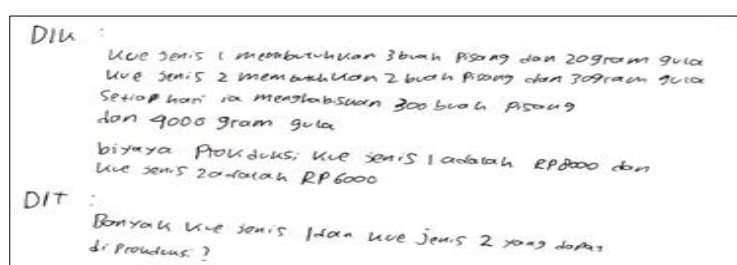 DIK :
kue jenis 1 membutuhkan 3 buah pisang dan 20 gram gula
kue jenis 2 membutuhkan 2 buah pisang dan 30 gram gula
Setiap hari ia menghabiskan 300 buah pisang
dan 4000 gram gula
biyaya Produksi kue jenis 1 adalah RP8000 dan
kue jenis 2 adalah RP6000
DIT :
Banyak kue jenis 1 dan kue jenis 2 yang dapat
di produksi ?